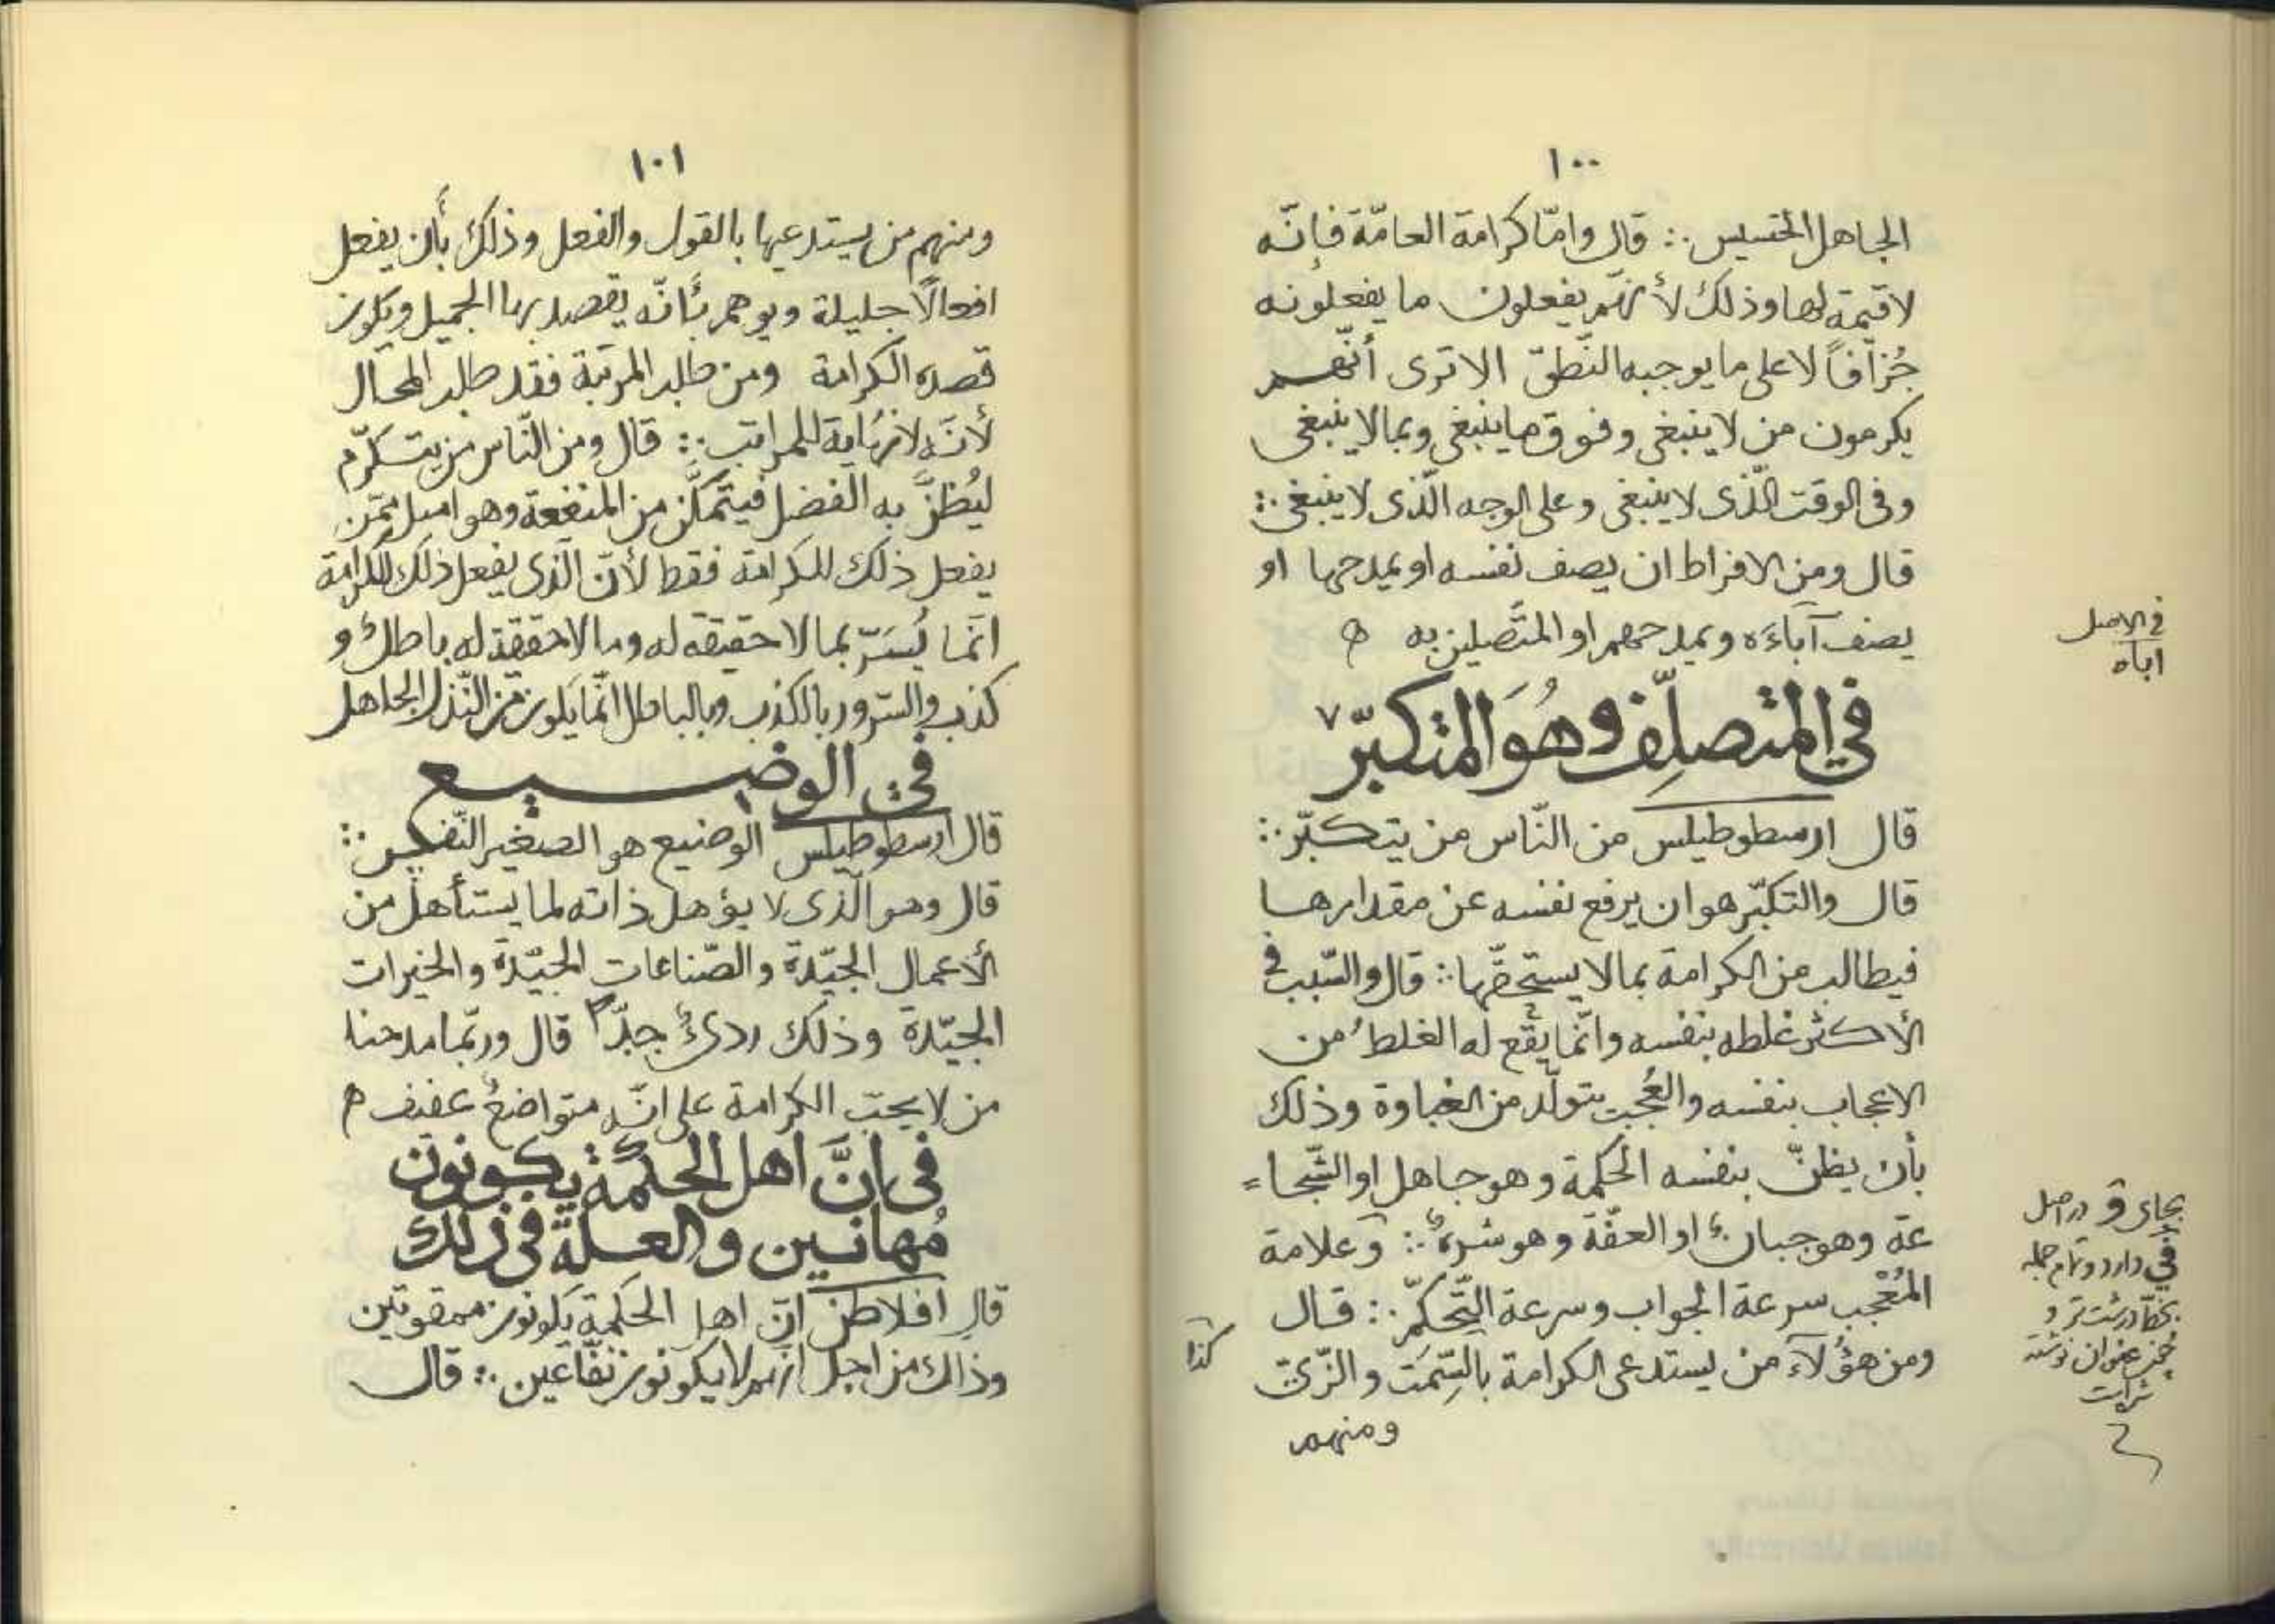 ١٠٠
الجاهل الخسيس ∴ قال وامّا كرامة العامّة فإنّه
لا قيمة لها وذلك لأنّهم يفعلون ما يفعلونه
جُزافاً لا على ما يوجبه النّطق الا ترى أنّهم
يكرمون من لا ينبغى وفوق ما ينبغى وبما لا ينبغى
وفى الوقت الّذى لا ينبغى وعلى الوجه الّذى لا ينبغى ∴
قال ومن الافراط ان يصف نفسه او يمدحها او
يصف آباءَه ويمدحهم او المتّصلين به ه
في المتصلِّف وهُوَ المتكبّر ٧
قال ارسطوطيلس من النّاس من يتكبّر ∴
قال والتكبّر هو ان يرفع نفسه عن مقدارها
فيطالب من الكرامة بما لا يستحقّها ∴ قال والسّبب فى
الأكثر غلطه بنفسه وانّما يقع له الغلطُ من
الاعجاب بنفسه والعُجب يتولّد من الغباوة وذلك
بأن يظنّ بنفسه الحكمة وهو جاهل او الشّجا=
عة وهو جبانٌ او العفّة وهو شرهٌ ∴ وعلامة
المُعْجب سرعة الجواب وسرعة التّحكّم ∴ قال
ومن هؤلآء من يستدعى الكرامة بالسّمت والزّىّ
ومنهم
فى الاصل
اباه
بجاى ق در اصل
فى دارد و تمام جمله
بخط درشت‌تر و
چون عنوان نوشته
شده است
كذا
١٠١
ومنهم من يستدعيها بالقول والفعل وذلك بأن يفعل
افعالًا جليلة ويوهم بأنّه يقصد بها الجميل ويكون
قصده الكرامة ومن طلب المرتبة فقد طلب المحال
لأنّه لا نهاية للمراتب ∴ قال ومن النّاس من يتكرّم
ليُظنَّ به الفضل فيتمكّن من المنفعة وهو امبل ممّن
يفعل ذلك للكرامة فقط لأنّ الّذى يفعل ذلك للكرامة
انّما يُسَرّ بما لا حقيقة له وما لا حقيقة له باطلٌ و
كذب والسّرور بالكذب وبالباطل انّما يكون من النّذل الجاهل
فى الوضيع
قال ارسطوطيلس الوضيع هو الصغير النّفس ∴
قال وهو الّذى لا يؤهل ذاته لما يستأهل من
الأعمال الجيّدة والصّناعات الجيّدة والخيرات
الجيّدة وذلك ردىءٌ جدّاً قال وربّما مدحنا
من لا يحبّ الكرامة على انّه متواضعٌ عفيف ه
فى انَّ اهل الحكمة يكونون
مُهانين والعلة فى ذلك
قال افلاطن انّ اهل الحكمة يكونون ممقوتين
وذالك من اجل انّهم لا يكونون نفّاعين ∴ قال